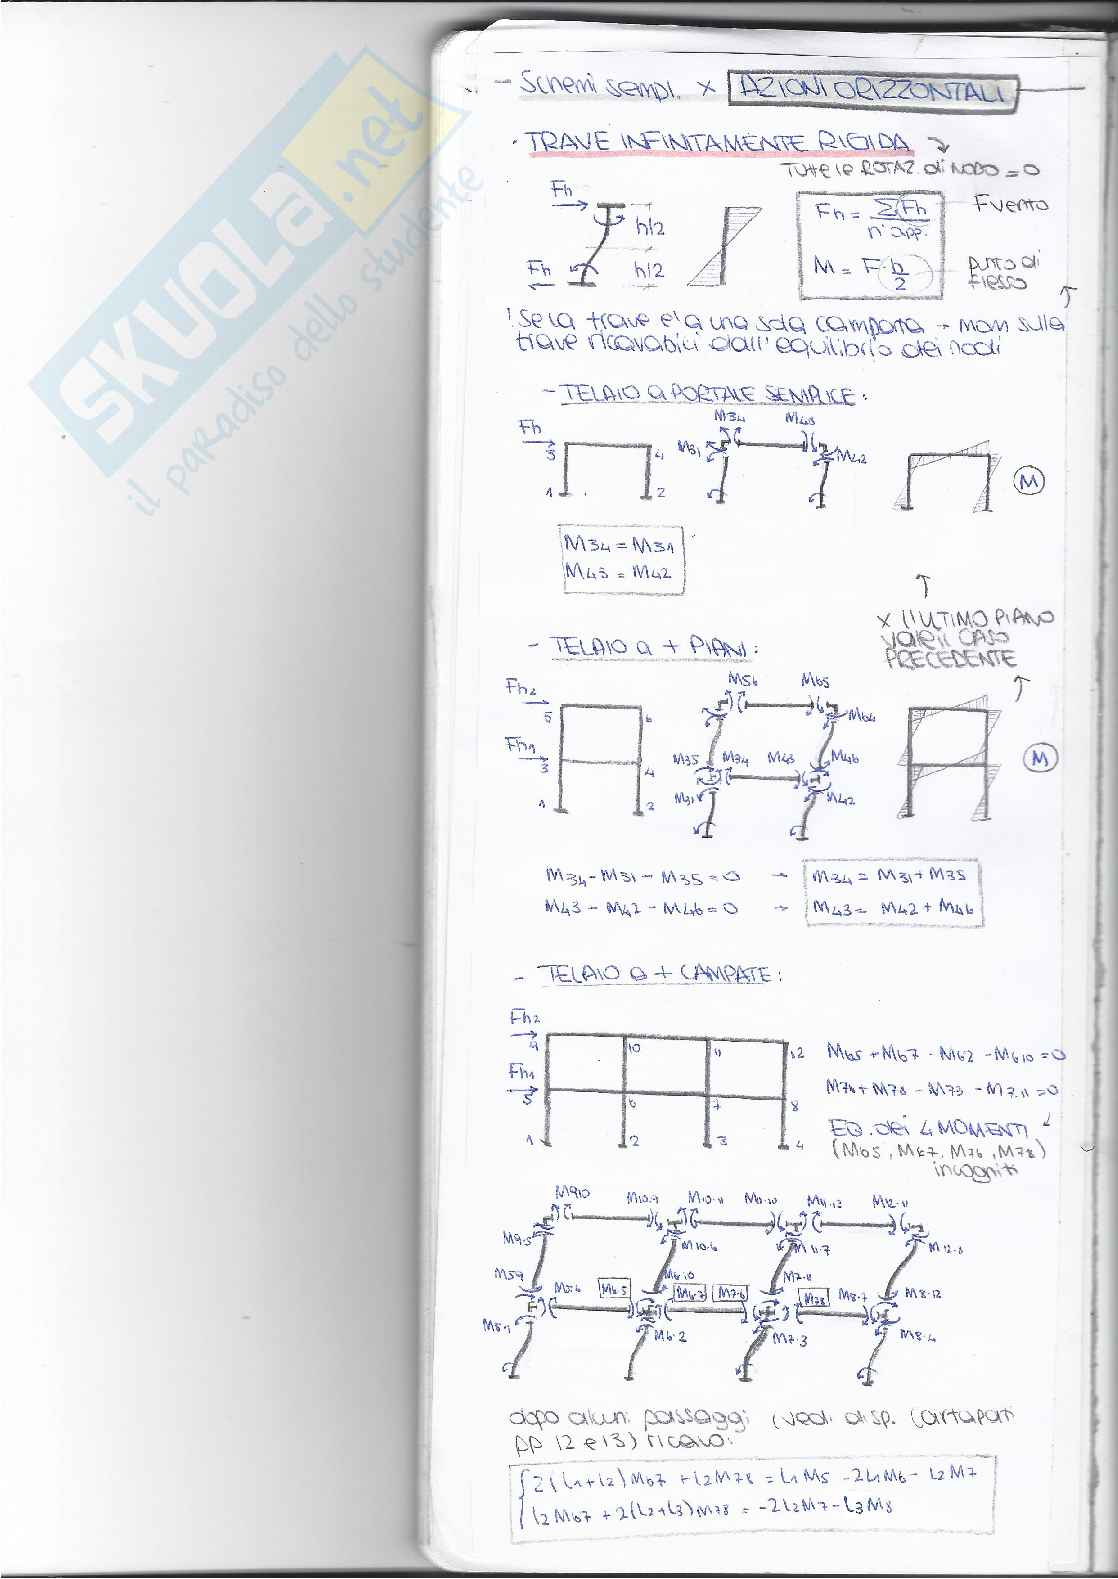 SKUOLA.net
il paradiso dello studente
- Schemi sempl. x AZIONI ORIZZONTALI
· TRAVE INFINITAMENTE RIGIDA
Tutte le ROTAZ. di NODO = 0
Fh
h/2
Fh
h/2
Fh = ΣFh / n° app.
F vento
M = F · h/2
punto di flesso
! Se la trave è a una sola campata → mom sulla
trave ricavabili dall'equilibrio dei nodi
- TELAIO a PORTALE SEMPLICE:
Fh
3 4
1 2
M34 M43
M31 M42
M
M34 = M31
M43 = M42
x l'ULTIMO PIANO
vale il CASO
PRECEDENTE
- TELAIO a + PIANI:
Fh2
5 6
Fh1
3 4
1 2
M56 M65
M64
M35 M34 M43 M46
M31 M42
M
M34 - M31 - M35 = 0 → M34 = M31 + M35
M43 - M42 - M46 = 0 → M43 = M42 + M46
- TELAIO a + CAMPATE:
Fh2
9 10 11 12
Fh1
5 6 7 8
1 2 3 4
M65 + M67 - M62 - M610 = 0
M76 + M78 - M73 - M7.11 = 0
EQ. dei 4 MOMENTI
(M65, M67, M76, M78)
incogniti
M910 M10.9 M10.11 M11.10 M11.12 M12.11
M9.5 M10.6 M11.7 M12.8
M59 M5.6 M6.5 M6.10 M6.7 M7.6 M7.11 M78 M8.7 M8.12
M5.1 M6.2 M7.3 M8.4
dopo alcuni passaggi (vedi disp. Cartapati
pp 12 e 13) ricavo:
2(L1+L2)M67 + L2M78 = L1M5 - 2L1M6 - L2M7
L2M67 + 2(L2+L3)M78 = -2L2M7 - L3M8